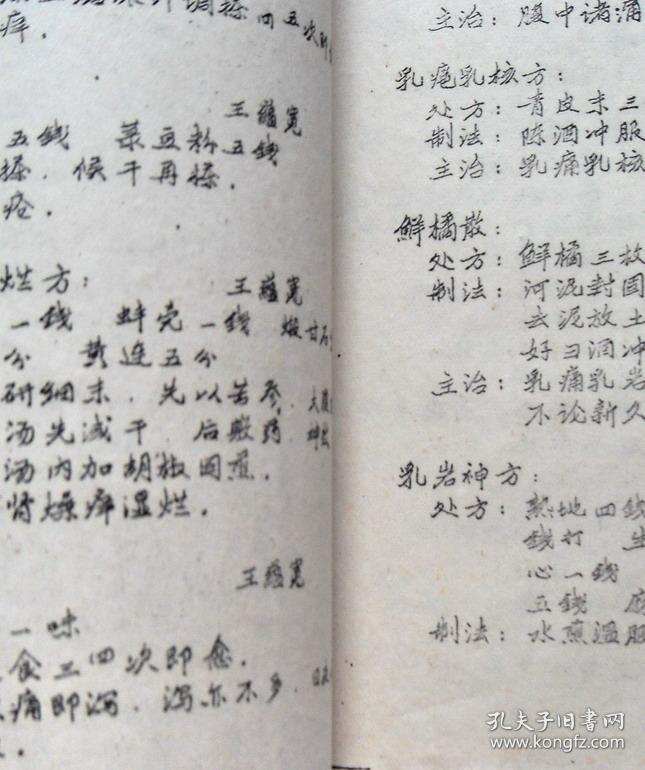 痒.
王蕴宽
五錢 菜豆粉五錢
搽.候干再搽.
疮.
烂方:
王蕴宽
一錢 蚌壳一錢 煅甘石
分 黄连五分
研细末.先以苦参.大腹
汤先洗干 后敷药.
汤内加胡椒同煎.
肾燥癣湿烂.
王蕴宽
一味
食三四次即愈.
痛即泻.泻亦不多.
主治:腹中诸痛
乳疱乳核方:
处方:青皮末三
制法:陈酒冲服
主治:乳痛乳核
鲜橘散:
处方:鲜橘三枚
制法:河泥封固
去泥放土
好曰酒冲
主治:乳痛乳岩
不论新久
乳岩神方:
处方:熟地四錢
錢打 生
心一錢
五錢
制法:水煎温服
孔夫子旧书网
www.kongfz.com